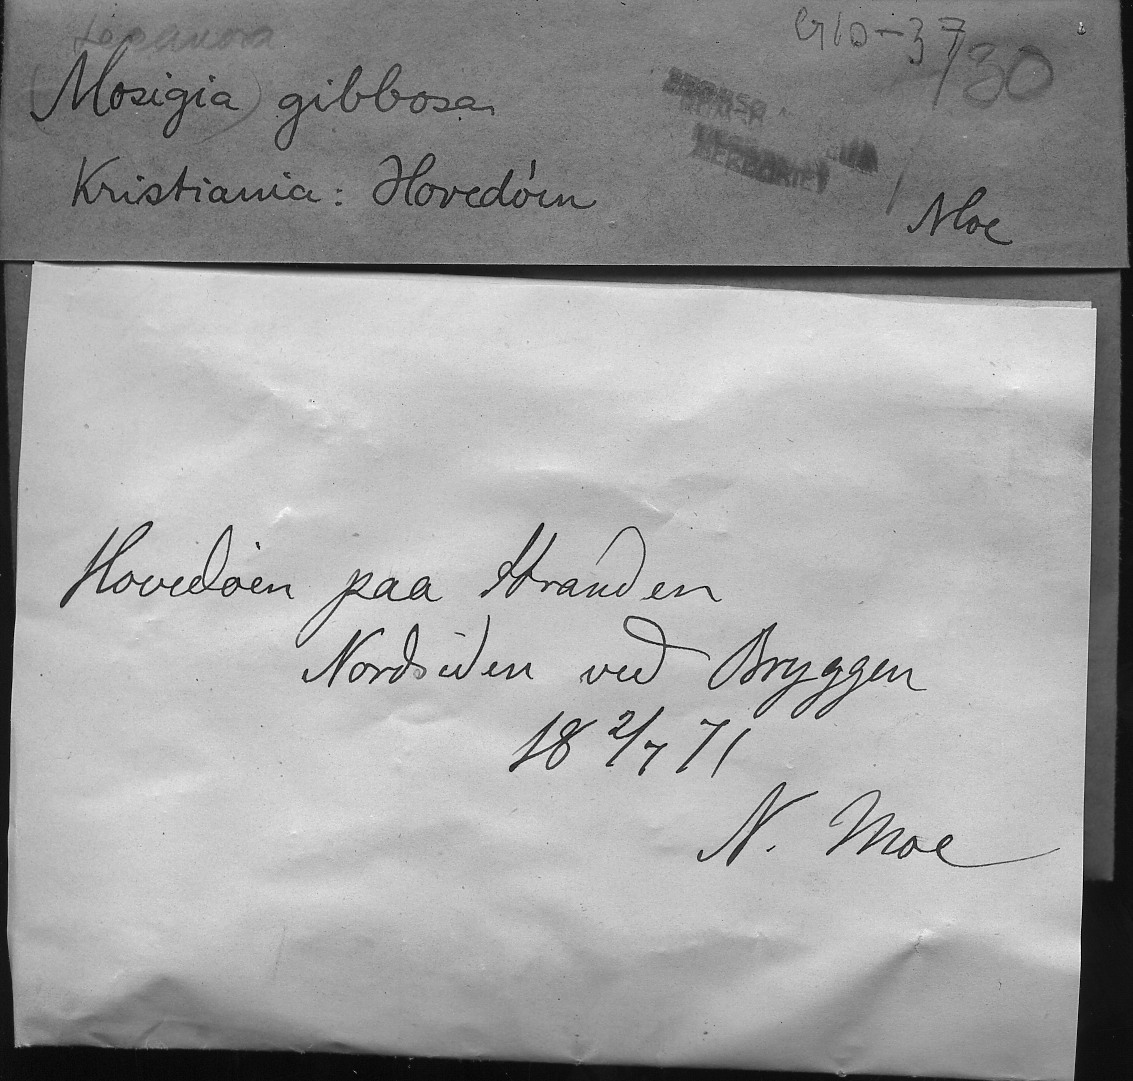 Lecanora
G10-37/30
(Mosigia) gibbosa
Kristiania: Hovedöen
Moe
Hovedöen paa Stranden
Nordsiden ved Bryggen
18 2/7 71
N. Moe